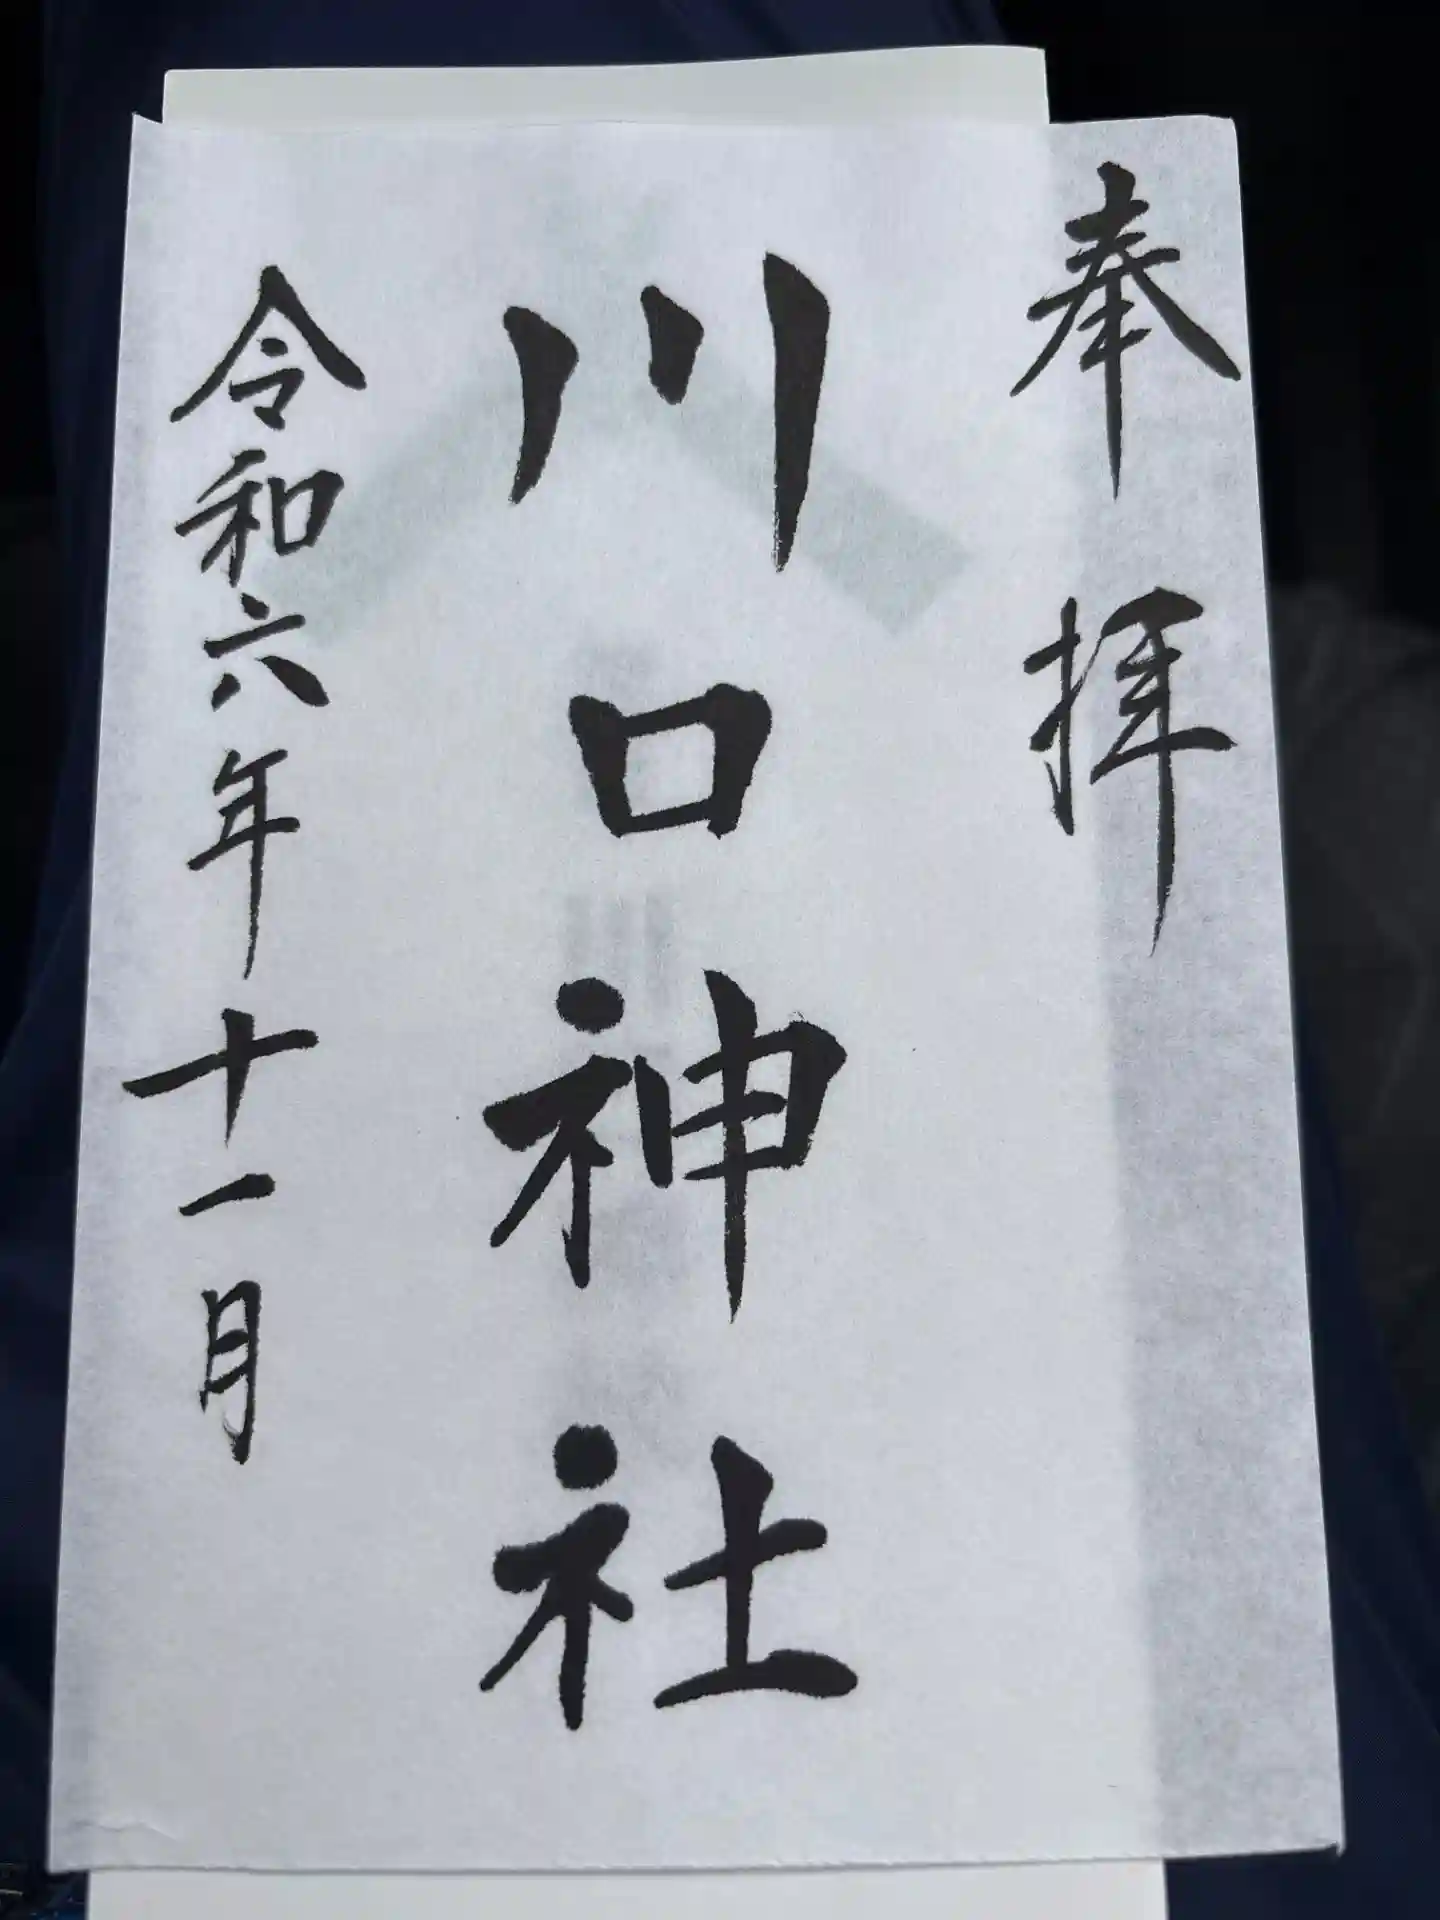 奉拝
川口神社
令和六年十一月